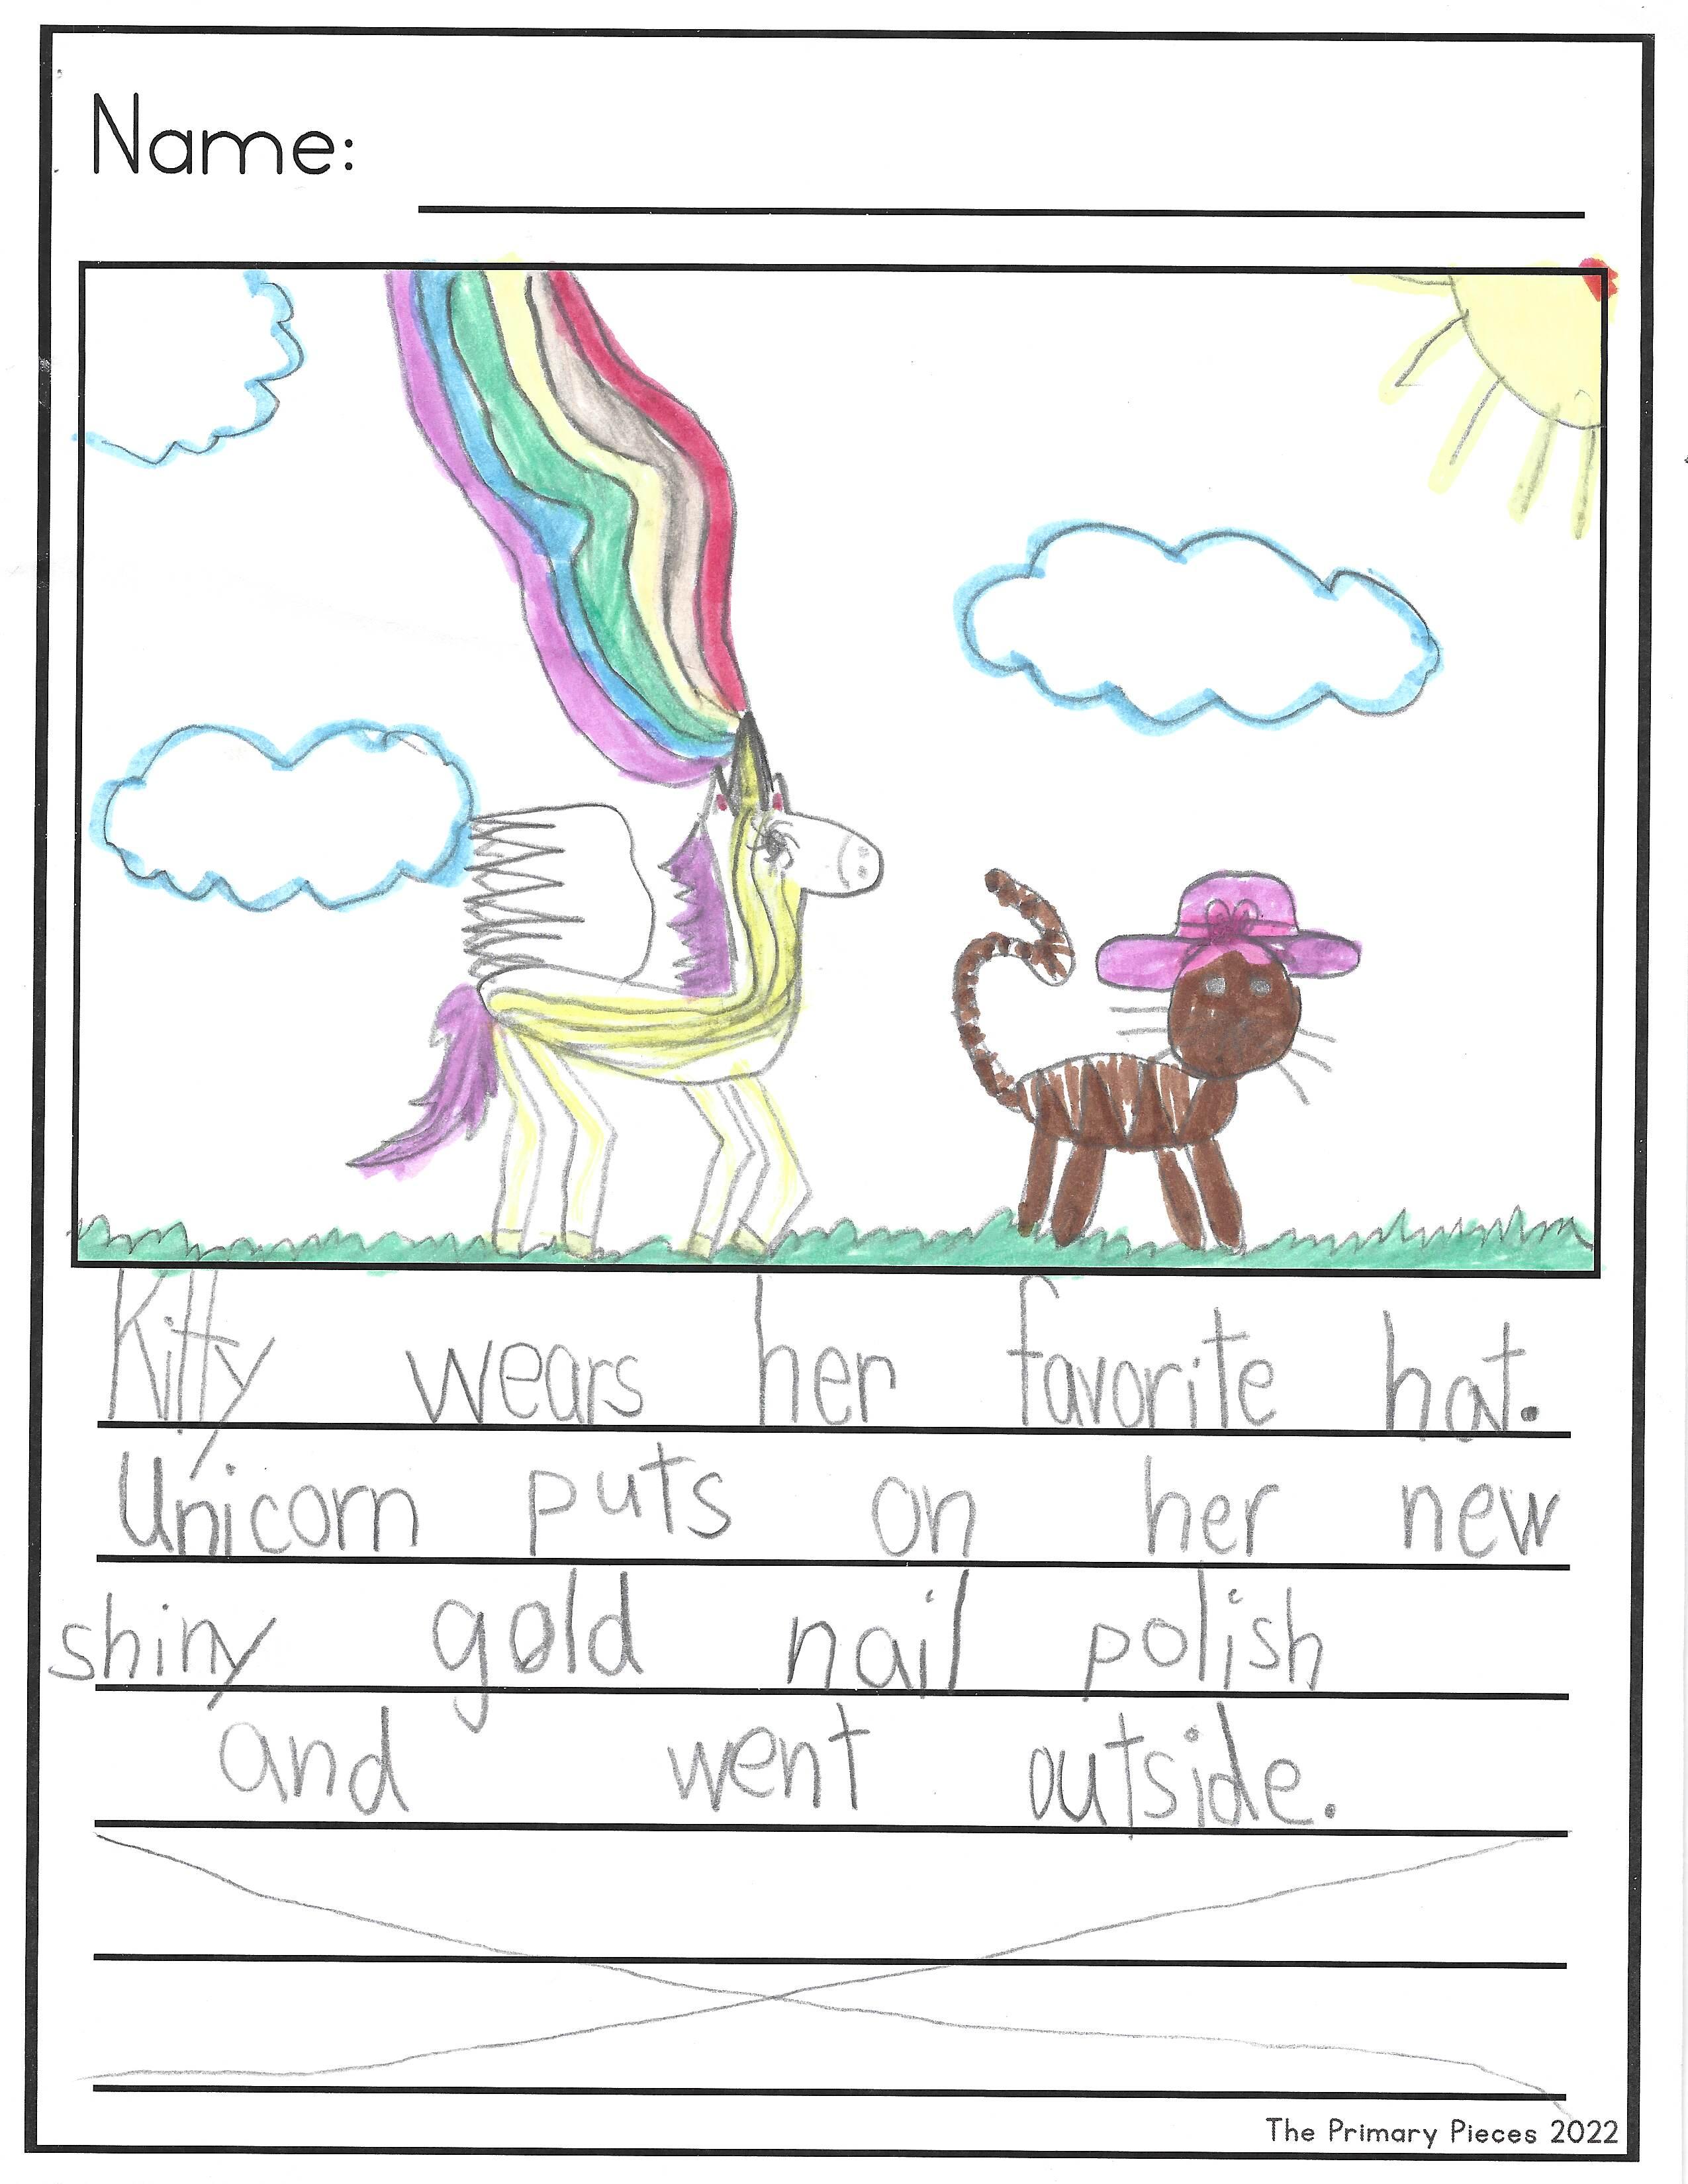 Name:
Kitty wears her favorite hat.
Unicorn puts on her new
shiny gold nail polish
and went outside.
The Primary Pieces 2022